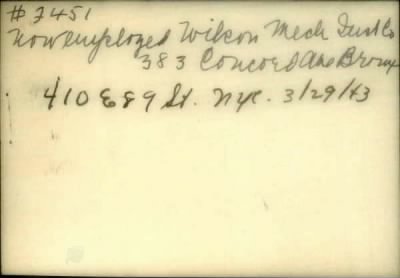 # 2451
Now employed Wilson Mech Inst Co
383 Concord Ave Bronx
410 E 89 St. NYC. 3/29/43